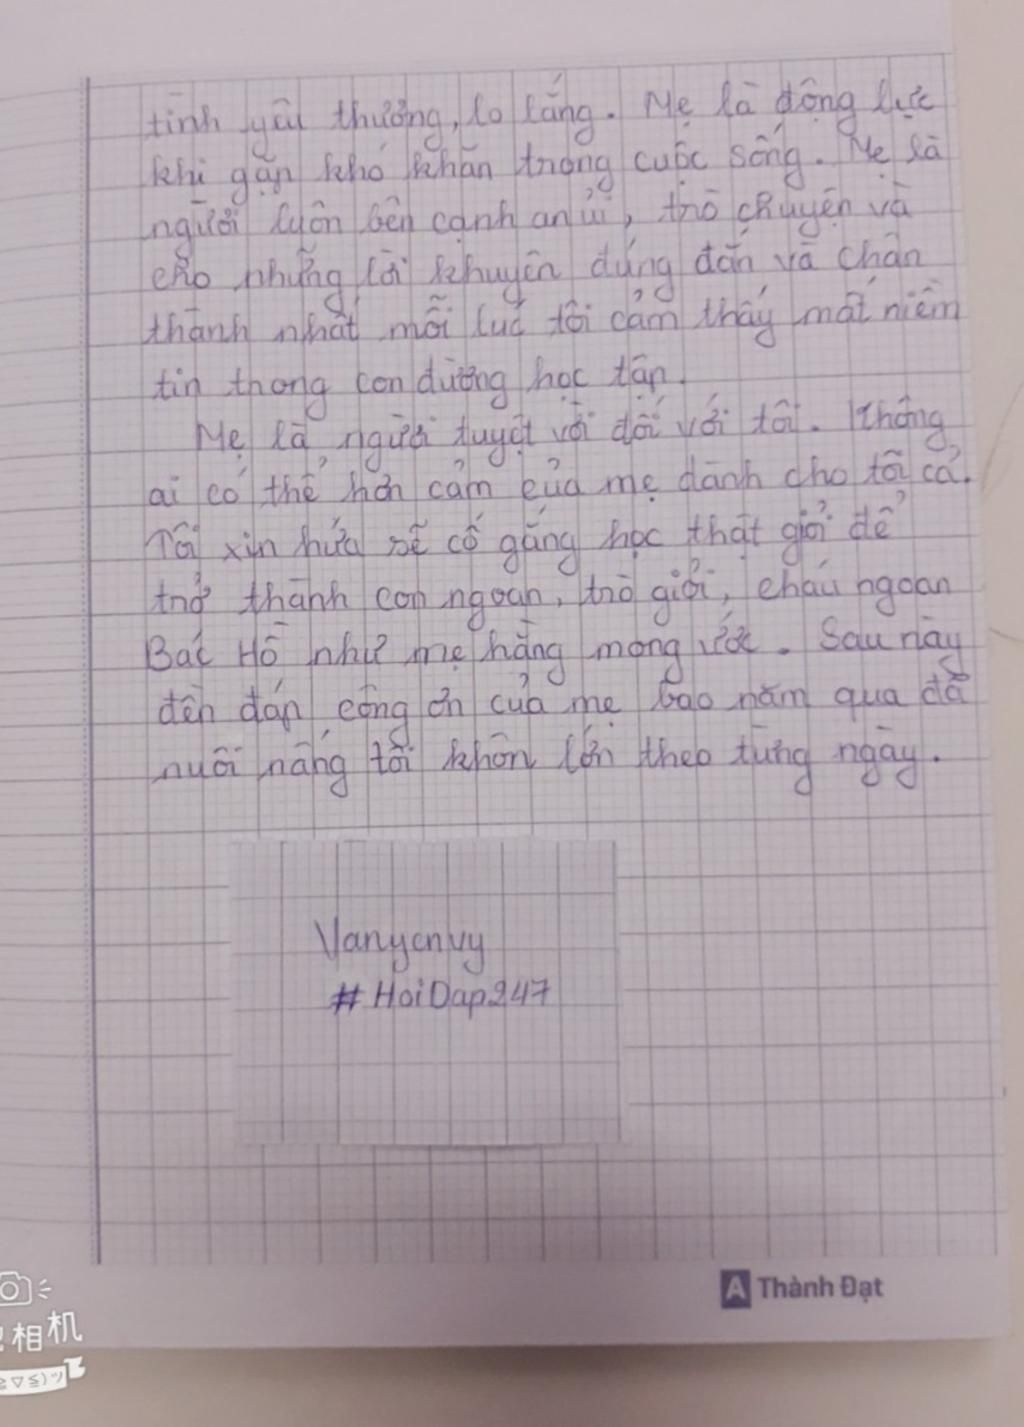 tình yêu thương, lo lắng. Mẹ là động lực
khi gặp khó khăn trong cuộc sống. Mẹ là
người luôn bên cạnh an ủi, trò chuyện và
cho những lời khuyên đúng đắn và chân
thành nhất mỗi lúc tôi cảm thấy mất niềm
tin thong con đường học tập.
Mẹ là người tuyệt vời đối với tôi. Không
ai có thể hơn cảm của mẹ dành cho tôi cả.
Tôi xin hứa sẽ cố gắng học thật giỏi để
trở thành con ngoan, trò giỏi, cháu ngoan
Bác Hồ như mẹ hằng mong ước. Sau này
đền đáp công ơn của mẹ bao năm qua đã
nuôi nấng tôi khôn lớn theo từng ngày.
Vanycnvy
#HoiDap247
A Thành Đạt
相机